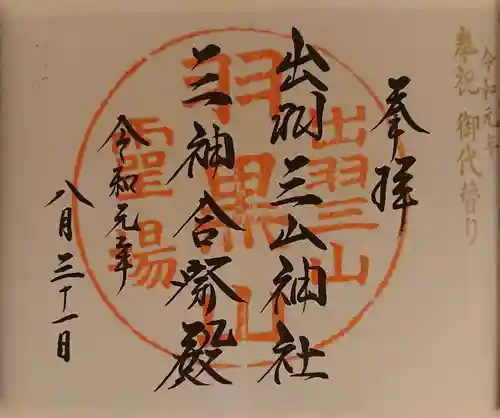 令和元年
奉祝 御代替り
奉拝
出羽三山神社
三神合祭殿
令和元年
八月三十一日
出羽三山
羽黒山
霊場